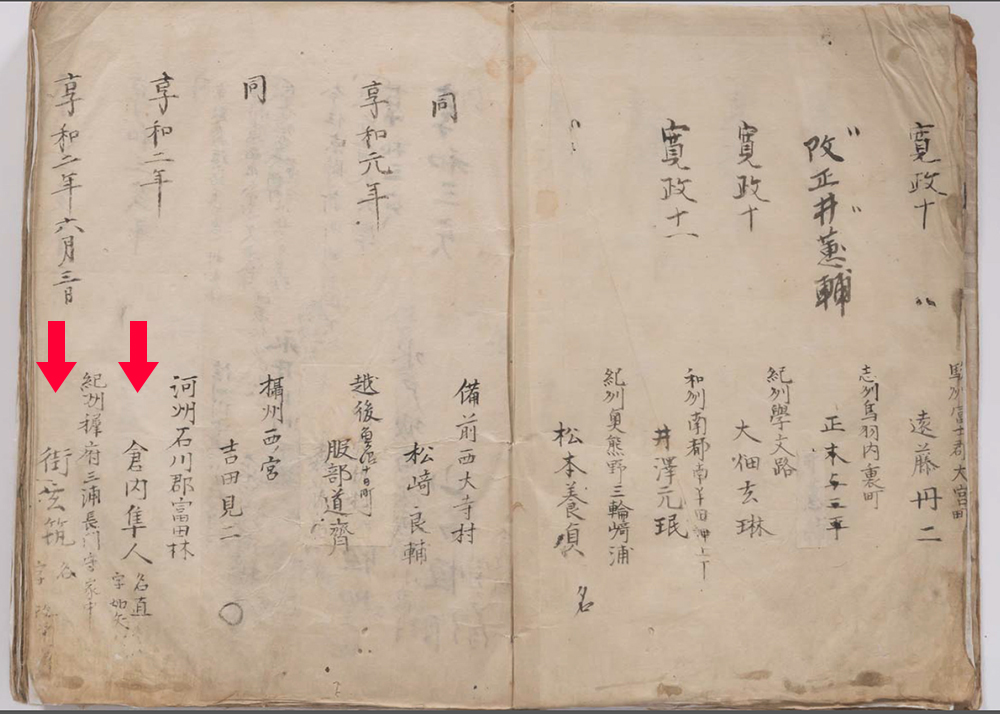 寛政十
遠藤丹二
志州鳥羽内裏町
改正井蕙輔
寛政十
紀州學文路
大畑玄琳
和州南都
井澤元珉
寛政十一
紀州奥熊野三輪﨑浦
松本養貞 名
同
備前西大寺村
松崎良輔
享和元年
越後魚沼十日町
服部道齊
同
攝州西宮
吉田見二 〇
享和二年
河州石川郡富田林
倉内隼人 名直
字
享和二年六月三日
紀州
府三浦長門守家中
街玄筑 名
字